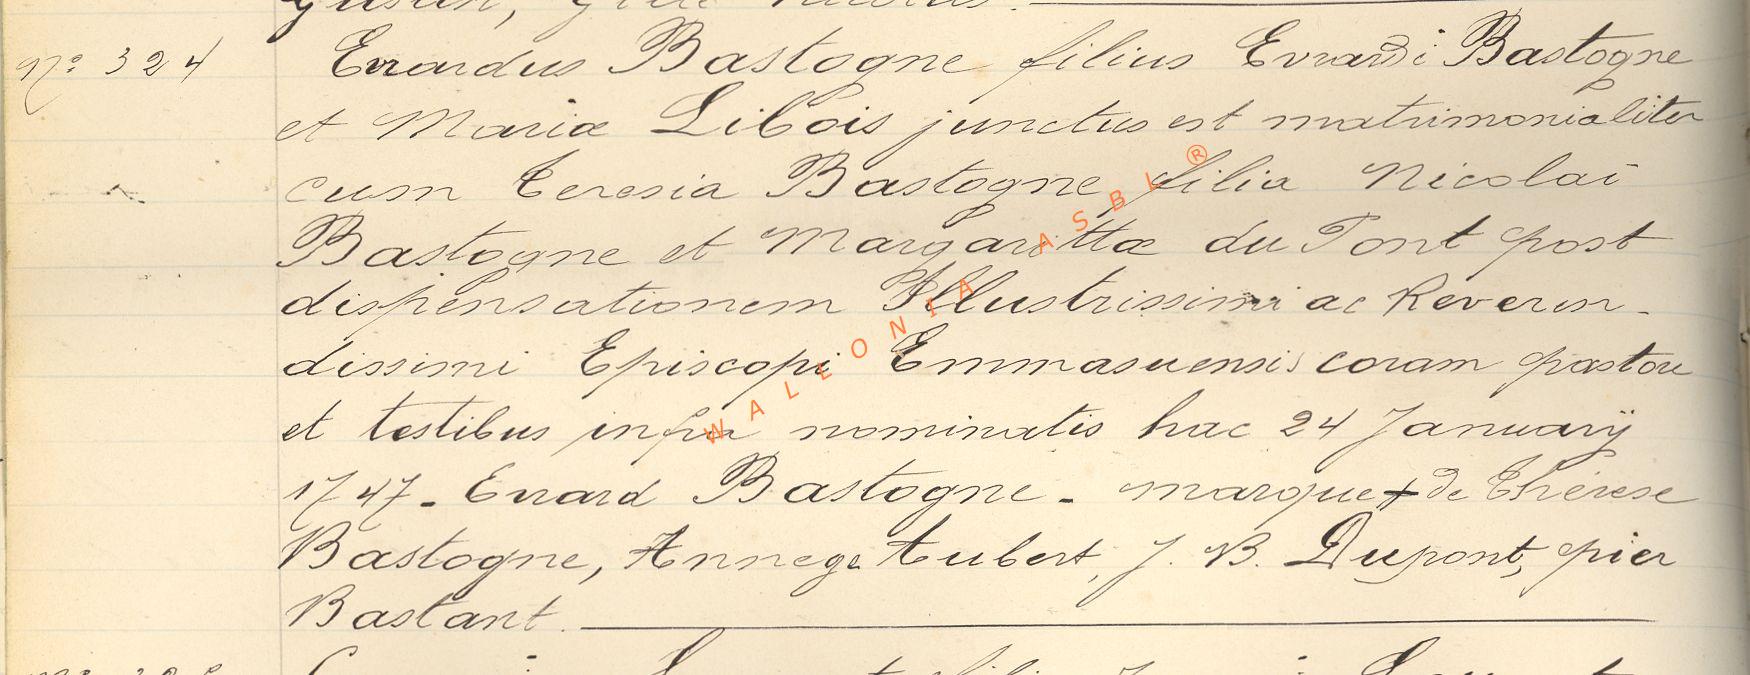 N° 324 Evrardus Bastogne filius Evrardi Bastogne
et Mariæ Libois junctus est matrimonialiter
cum Teresia Bastogne filia Nicolai
Bastogne et Margarittæ du Pont post
dispensationem Illustrissimi ac Reveren-
dissimi Episcopi Emmasuensis coram pastore
et testibus infra nominatis hac 24 Januarÿ
1747 - Evrard Bastogne - marque + de Thérese
Bastogne, Aubert, J. B. Dupont, pier
Bastant.
WALLONIA ASBL ®